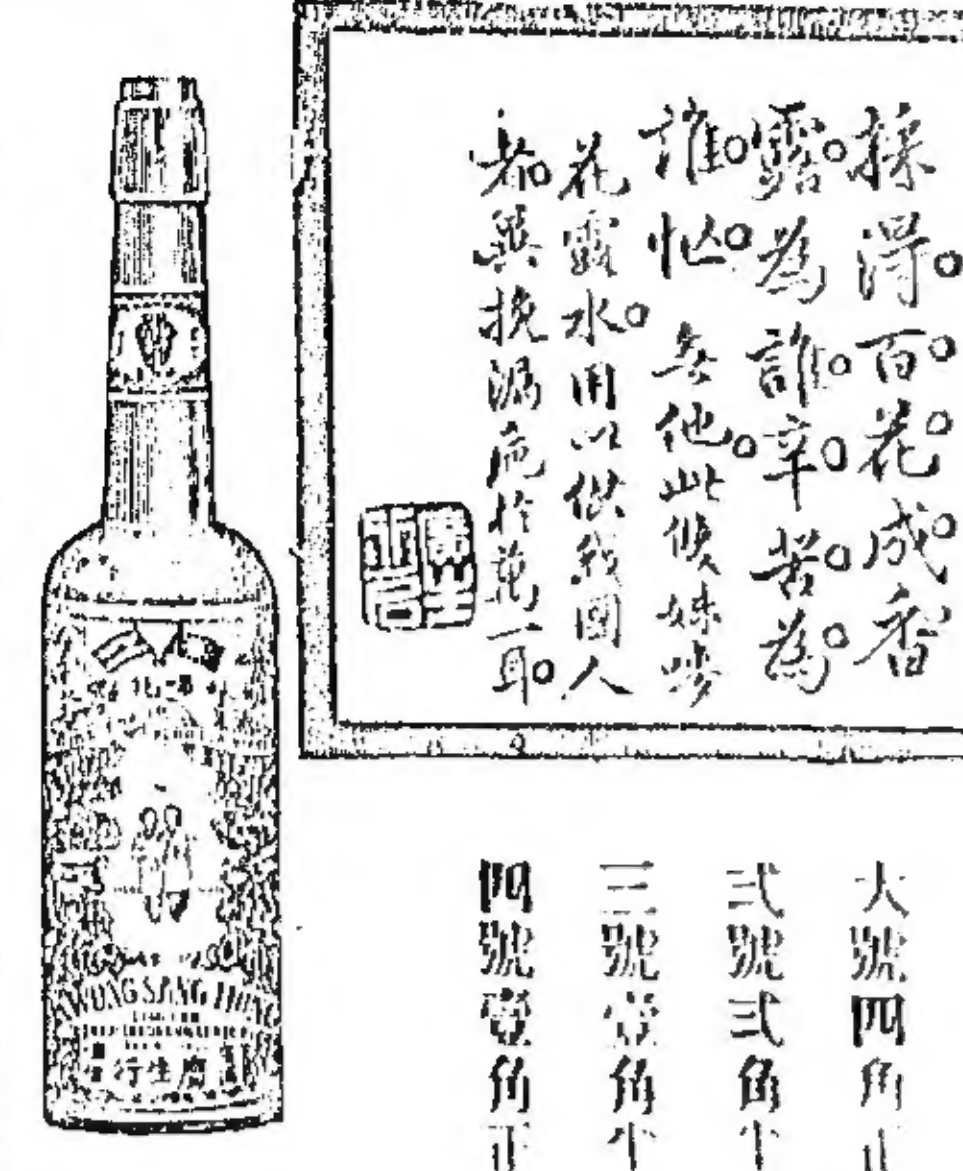 採得。百。花。成。香
露。為誰。辛。苦。為。
誰。忙。無他。此妹嘜
花露水。用以供我國人
者。冀挽漏巵於萬一耳。
大號四角正
弍號弍角半
三號壹角半
四號壹角正
KWONG SANG HONG
廣生行